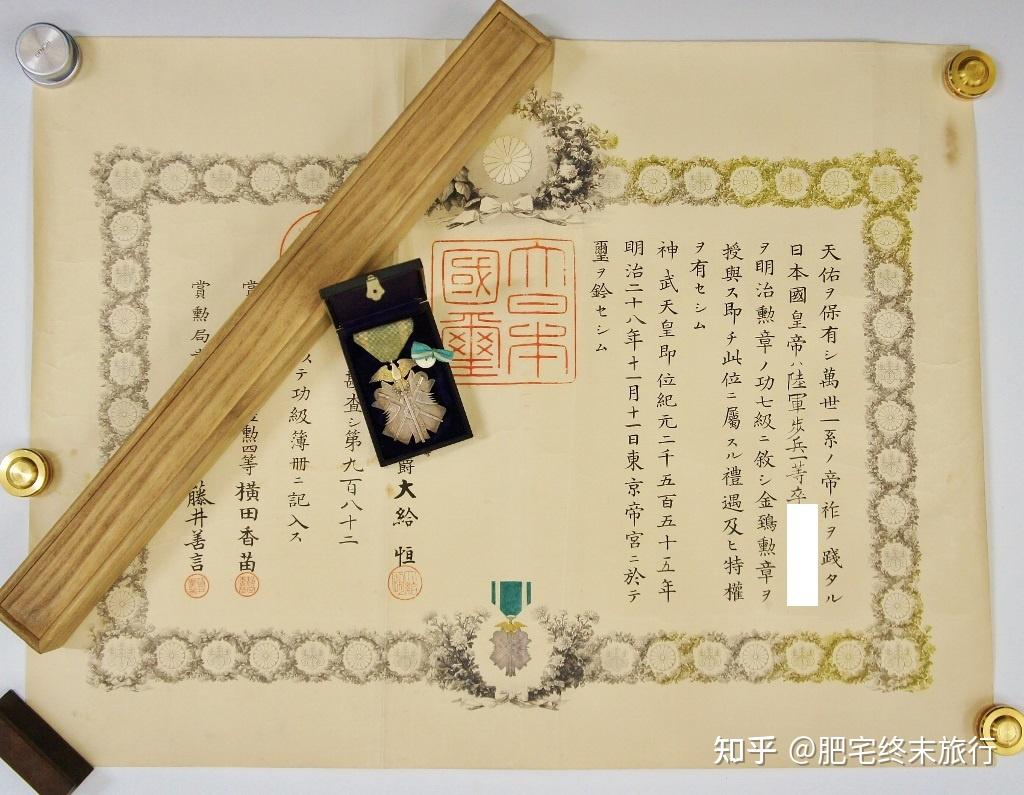 天佑ヲ保有シ萬世一系ノ帝祚ヲ踐タル
日本國皇帝ハ陸軍歩兵一等卒
ヲ明治勲章ノ功七級ニ敘シ金鵄勲章ヲ
授與ス即チ此位ニ屬スル禮遇及ヒ特權
ヲ有セシム
神武天皇即位紀元二千五百五十五年
明治二十八年十一月十一日東京帝宮ニ於テ
璽ヲ鈐セシム
大日本
國璽
爵大給恒
査シ第九百八十二
ステ功級簿册ニ記入ス
勲四等横田香苗
賞勲局
藤井善言
知乎 @肥宅终末旅行